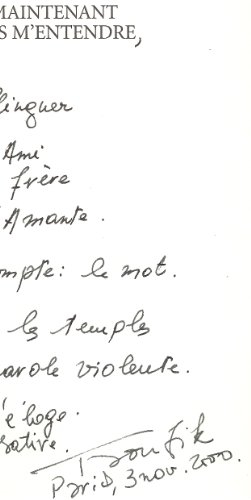 MAINTENANT
S M'ENTENDRE,
linguer
Ami
frère
Amante.
ompte: le mot.
les temples
arole violente.
'éloge.
sative.
Paris, 3 nov. 2000.